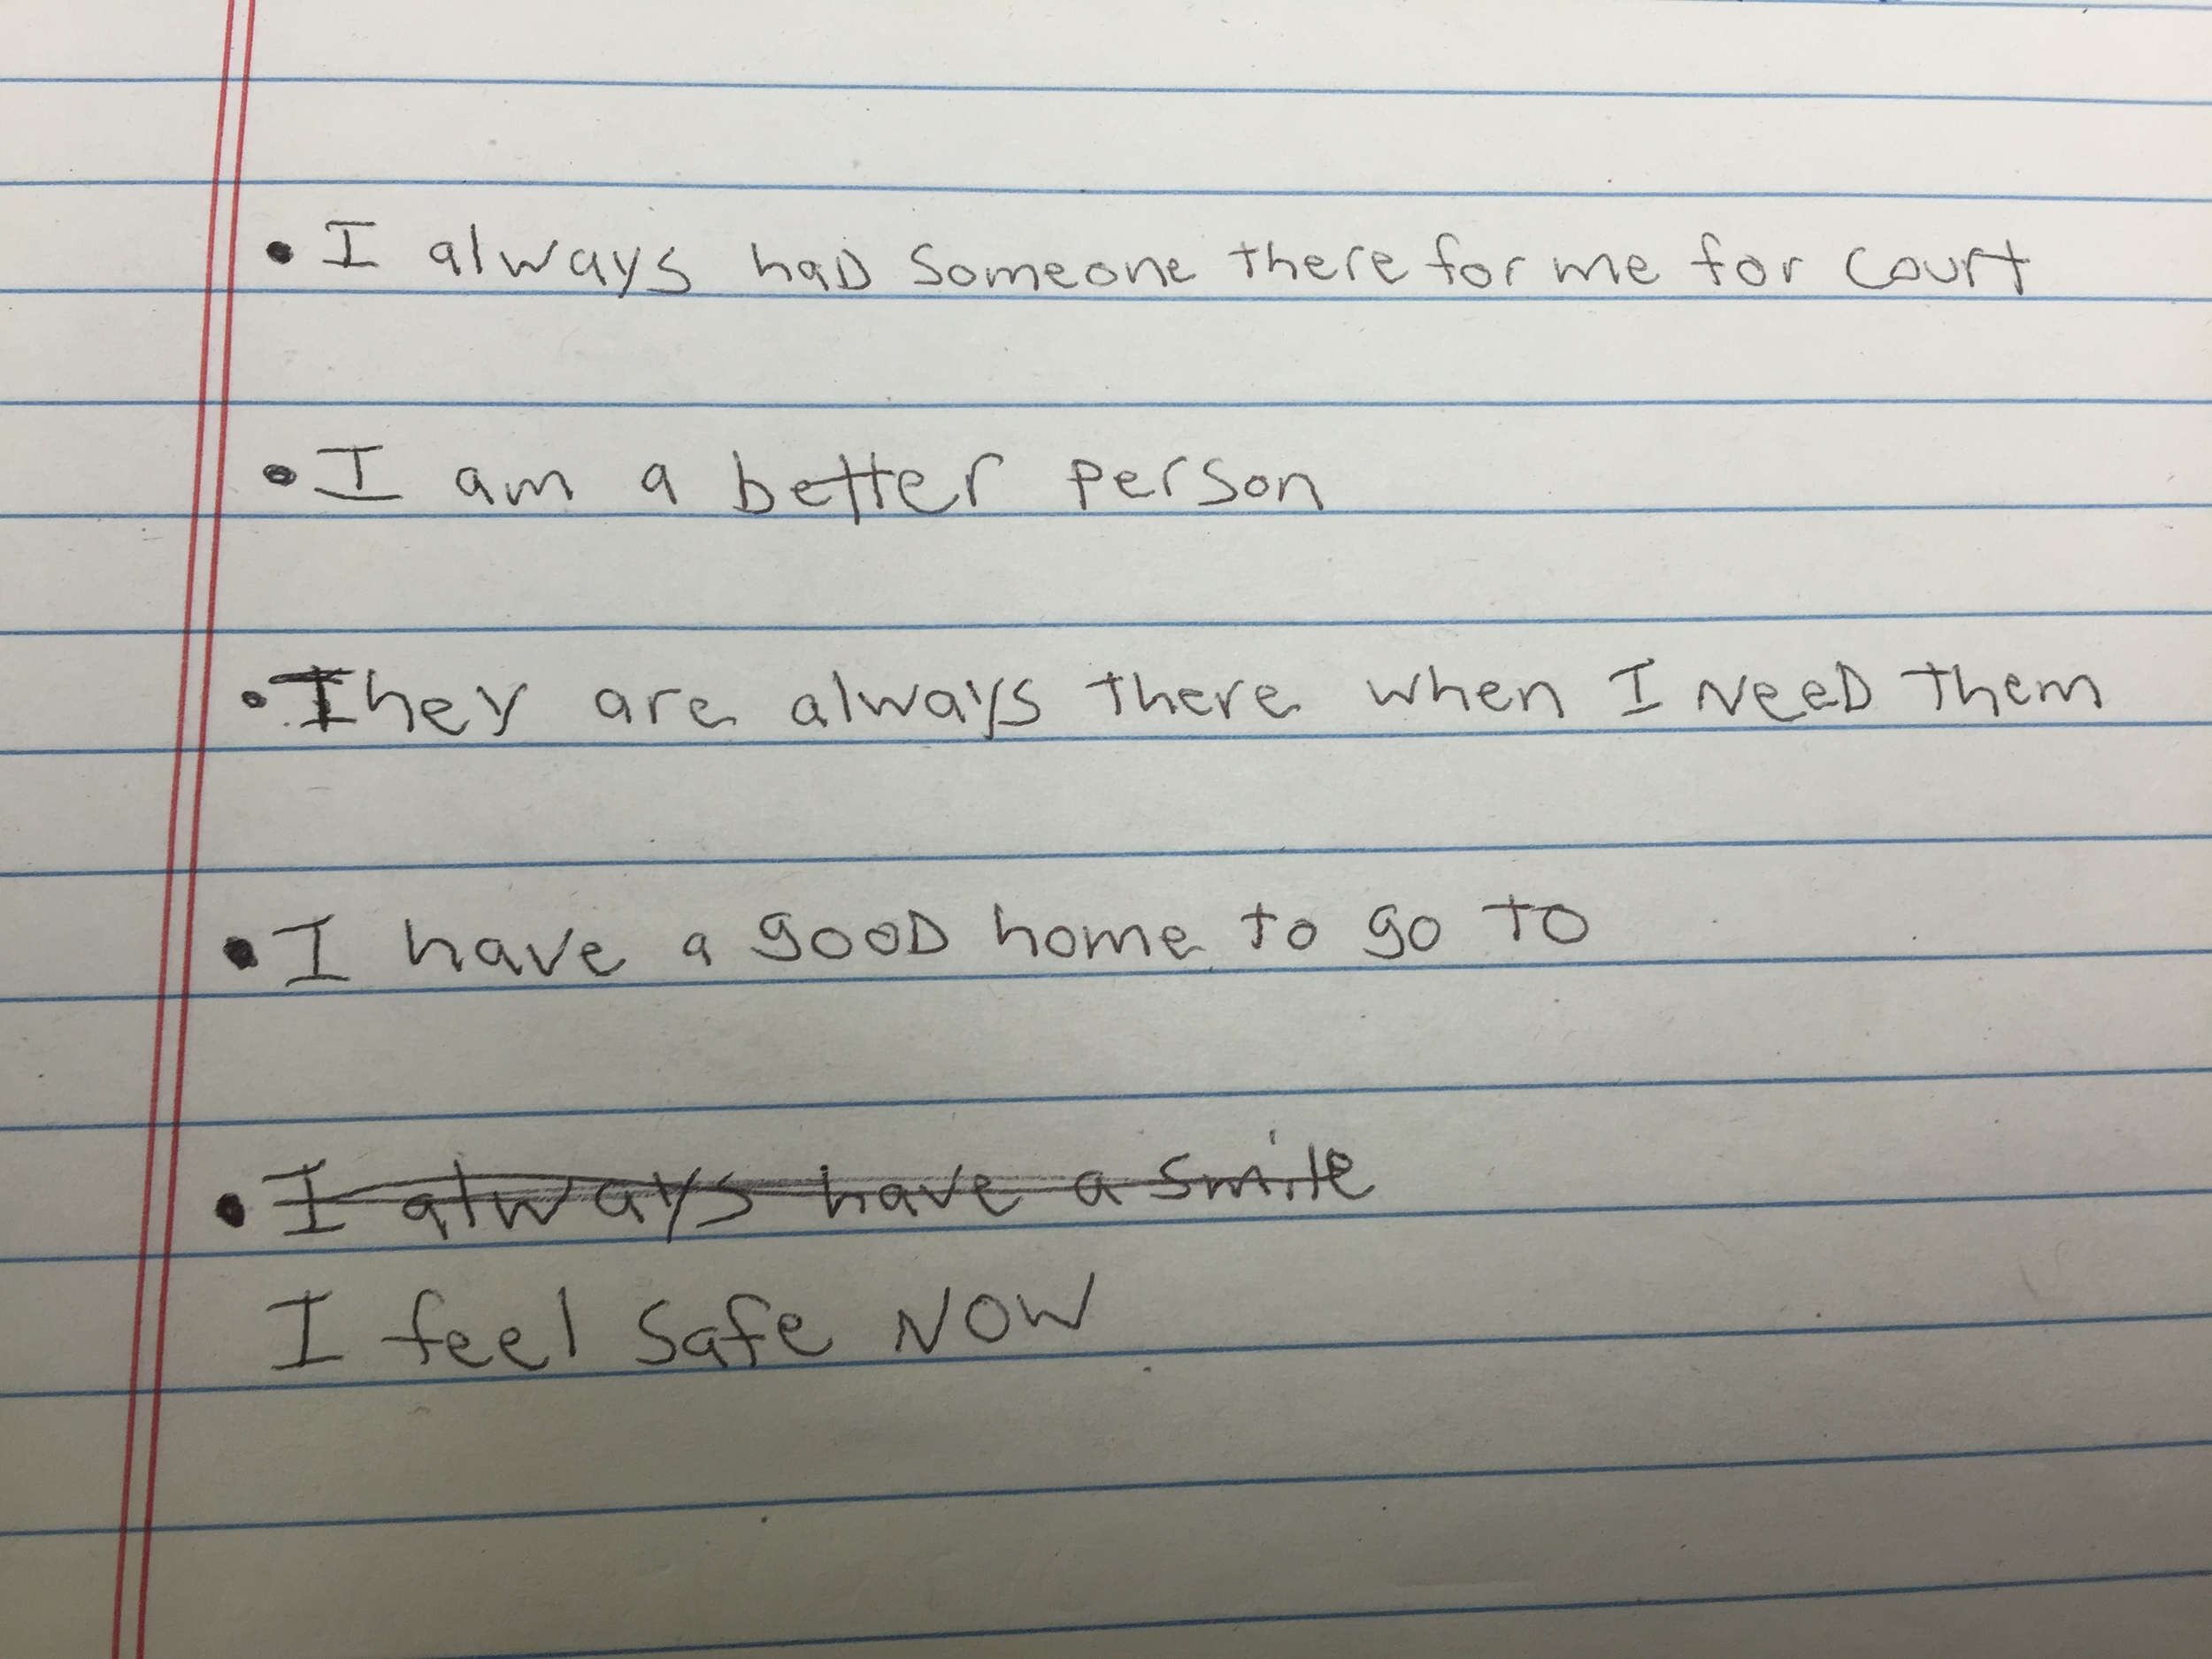 • I always haD Someone there for me for Court
• I am a better person
• They are always there when I NeeD them
• I have a gooD home to go to
• I always have a smile
I feel Safe NOW